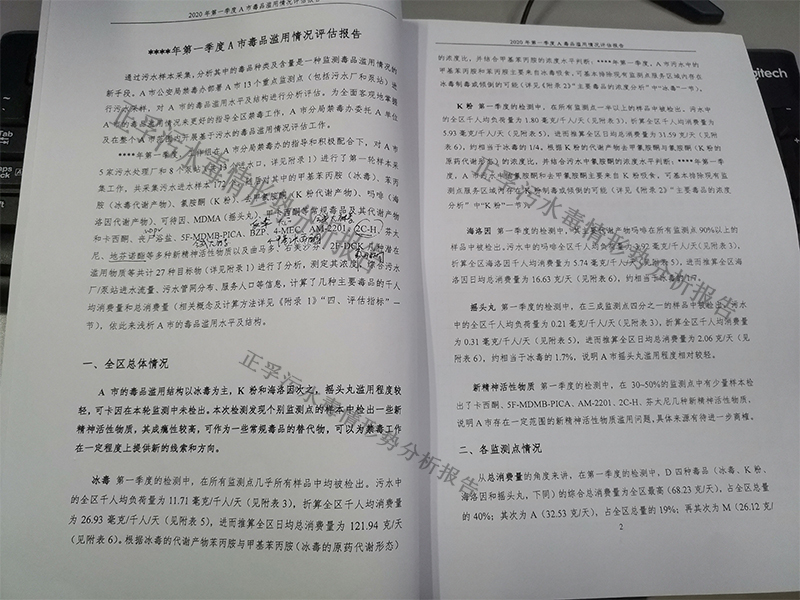 2020 年第一季度 A 市毒品滥用情况评估报告
****年第一季度 A 市毒品滥用情况评估报告
通过污水样本采集,分析其中的毒品种类及含量是一种监测毒品滥用情况的
新手段。A 市公安局禁毒办部署 A 市 13 个重点监测点（包括污水厂和泵站）进
行污水采样，对 A 市的毒品滥用水平及结构进行分析评估。为全面客观地掌握
A 市的毒品滥用情况来更好的指导全区禁毒工作，A 市分局禁毒办委托 A 单位
及在整个 A 市范围内开展基于污水的毒品滥用情况评估工作。
****年第一季度，在 A 市分局禁毒办的指导和积极配合下，对 A 市
5 家污水处理厂和 8 个泵站 进水口，详见附录 1）进行了第一轮样本采
集工作，共采集污水进水样 对其中的甲基苯丙胺（冰毒）、苯丙
胺（冰毒代谢产物）、氯胺酮（K 粉）、去甲氯胺酮（K 粉代谢产物）、吗啡（海
洛因代谢产物）、可待因、MDMA（摇头丸）、甲卡西酮等常规毒品及其代谢产物
和卡西酮、丧尸浴盐、5F-MDMB-PICA、BZP、4-MEC、AM-2201、2C-H、芬太
尼、地芬诺酯等多种新精神活性物质以及由马多、右美沙芬、2F-DCK 等潜在
滥用物质等共计 27 种目标物（详见附录 1）进行了分析，测定其浓度，综合污水
厂/泵站进水流量、污水管网分布、服务人口等信息，计算了几种主要毒品的千人
均消费量和总消费量（相关概念及计算方法详见《附录 1》“四、评估指标”一
节），依此来浅析 A 市的毒品滥用水平及结构。
一、全区总体情况
A 市的毒品滥用结构以冰毒为主，K 粉和海洛因次之，摇头丸滥用程度较
轻，可卡因在本轮监测中未检出。本次检测发现个别监测点的样本中检出一些新
精神活性物质，其成瘾性较高，可作为一些常规毒品的替代物，可以为禁毒工作
在一定程度上提供新的线索和方向。
冰毒 第一季度的检测中，在所有监测点几乎所有样品中均被检出。污水中
的全区千人均负荷量为 11.71 毫克/千人/天（见附表 3），折算全区千人均消费量
为 26.93 毫克/千人/天（见附表 5），进而推算全区日均总消费量为 121.94 克/天
（见附表 6）。根据冰毒的代谢产物苯丙胺与甲基苯丙胺（冰毒的原药代谢形态）
2020 年第一季度 A 毒品滥用情况评估报告
的浓度比，并结合甲基苯丙胺的浓度水平判断：****年第一季度，A 市污水中的
甲基苯丙胺和苯丙胺主要来自冰毒吸食，可基本排除现有监测点服务区域内存在
冰毒制毒或倾倒的可能（详见《附录 2》“主要毒品的浓度分析”中“冰毒”一节）。
K 粉 第一季度的检测中，在所有监测点一半以上的样品中被检出。污水中
的全区千人均负荷量为 1.80 毫克/千人/天（见附表 3），折算全区千人均消费量为
5.93 毫克/千人/天（见附表 5），进而推算全区日均总消费量为 31.59 克/天（见附
表 6），约相当于冰毒的 1/4。根据 K 粉的代谢产物去甲氯胺酮与氯胺酮（K 粉的
原药代谢形态）的浓度比，并结合污水中氯胺酮的浓度水平判断：****年第一季
度，A 市污水中氯胺酮和去甲氯胺酮主要来自 K 粉吸食，可基本排除现有监
测点服务区域内存在 K 粉制毒或倾倒的可能（详见《附录 2》“主要毒品的浓度
分析”中“K 粉”一节）。
海洛因 第一季度的检测中，其主要代谢产物吗啡在所有监测点 90%以上的
样品中被检出。污水中的吗啡全区千人均负荷量为 3.92 毫克/千人/天（见附表 3），
折算全区海洛因千人均消费量为 5.74 毫克/千人/天（见附表 5），进而推算全区海
洛因日均总消费量为 16.63 克/天（见附表 6），约相当于冰毒的
摇头丸 第一季度的检测中，在三成监测点四分之一的样品中被检出。污水
中的全区千人均负荷量为 0.21 毫克/千人/天（见附表 3），折算全区千人均消费量
为 0.31 毫克/千人/天（见附表 5），进而推算全区日均总消费量为 2.06 克/天（见
附表 6），约相当于冰毒的 1.7%，说明 A 市摇头丸滥用程度相对较轻。
新精神活性物质 第一季度的检测中，在 30~50%的监测点中有少量样本检
出了卡西酮、5F-MDMB-PICA、AM-2201、2C-H、芬太尼几种新精神活性物质，
说明 A 市存在一定范围的新精神活性物质滥用问题，具体来源有待进一步商榷。
二、各监测点情况
从总消费量的角度来讲，在第一季度的检测中，D 四种毒品（冰毒、K 粉、
海洛因和摇头丸，下同）的综合总消费量为全区最高（68.23 克/天），占全区总量
的 40%；其次为 A（32.53 克/天），占全区总量的 19%；再其次为 M（26.12 克/
2
正孚污水毒情形势分析报告
正孚污水毒情形势分析报告
正孚污水毒情形势分析报告
Tab
Caps
gitech